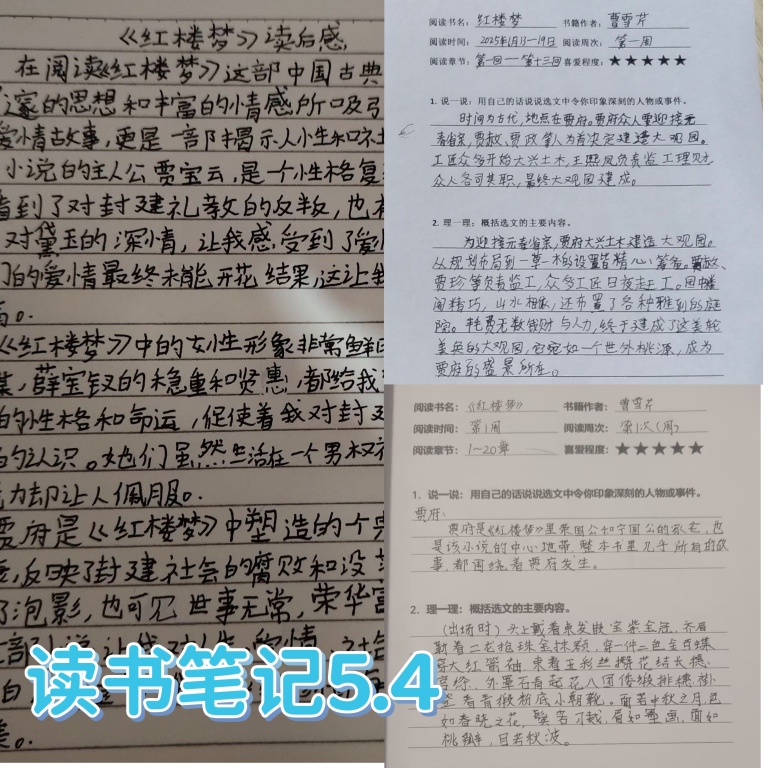 《红楼梦》读后感
在阅读《红楼梦》这部中国古典
家的思想和丰富的情感所吸引
爱情故事,更是一部揭示人性和社
小说的主人公贾宝云,是一个性格复
看到了对封建礼教的反叛,也
对黛玉的深情,让我感受到了爱
们的爱情最终未能开花结果,这让我
《红楼梦》中的女性形象非常鲜
薛宝钗的稳重和贤惠,都给我
的性格和命运,促使着我对封建
的认识。她们虽然生活在一个男权社
力却让人佩服。
贾府是《红楼梦》中塑造的个典
反映了封建社会的腐败和没落
了泡影,也可见世事无常,荣华富
读书笔记5.4
阅读书名:红楼梦 书籍作者:曹雪芹
阅读时间:2025年1月13-19日 阅读周次:第一周
阅读章节:第一回—第十三回 喜爱程度:★★★★★
1. 说一说:用自己的话说说选文中令你印象深刻的人物或事件。
时间为古代,地点在贾府。贾府众人要迎接元
春省亲,贾赦、贾政等人为首决定建造大观园。
工匠众多开始大兴土木,王熙凤负责监工理财,
众人各司其职,最终大观园建成。
2. 理一理:概括选文的主要内容。
为迎接元春省亲,贾府大兴土木建造大观园。
从规划布局到一草一木的设置皆精心筹备。贾赦、
贾珍等负责监工,众多工匠日夜赶工。园中楼
阁精巧,山水相依,还布置了各种雅致的庭
院。耗费无数钱财与人力,终于建成了这美轮
美奂的大观园,它宛如一个世外桃源,成为
贾府的盛景所在。
阅读书名:《红楼梦》 书籍作者:曹雪芹
阅读时间:第1周 阅读周次:第1次(周)
阅读章节:1~20章 喜爱程度:★★★★★
1. 说一说:用自己的话说说选文中令你印象深刻的人物或事件。
贾府:
贾府是《红楼梦》里荣国公和宁国公的家宅,也
是该小说的中心地带,整本书里几乎所有的故
事都围绕着贾府发生。
2. 理一理:概括选文的主要内容。
(出场时)头上戴着束发嵌宝紫金冠,齐眉
勒着二龙抢珠金抹额,穿一件二色金百蝶
穿大红箭袖,束着五彩丝攒花结长穗
宫绦,外罩石青起花八团倭缎排穗褂
登着青缎粉底小朝靴。面若中秋之月,色
如春晓之花,鬓若刀裁,眉如墨画,面如
桃瓣,目若秋波。